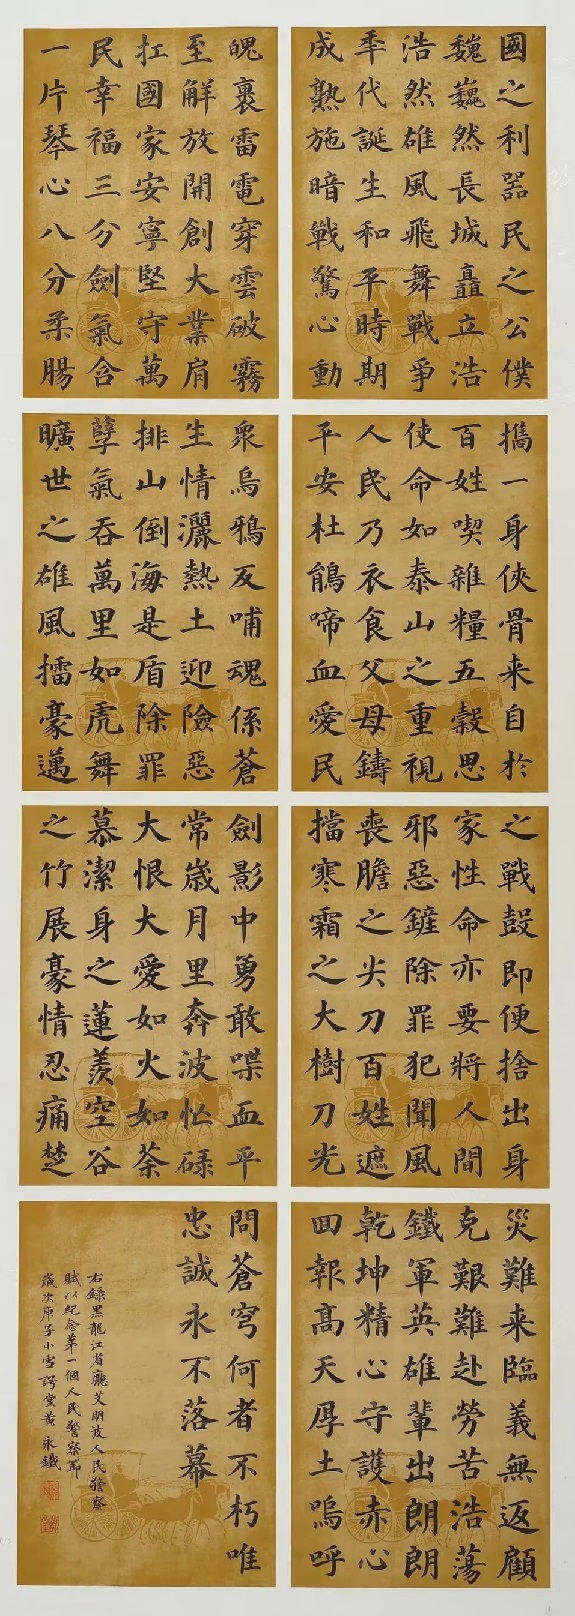 國之利器民之公僕
魏巍然長城矗立浩
浩然雄風飛舞戰爭
秊代誕生和平時期
成熟施暗戰驚心動
魄裹雷電穿雲破霧
至解放開創大業肩
扛國家安寧堅守萬
民幸福三分劍氣含
一片琴心八分柔腸
擕一身俠骨来自於
百姓喫雜糧五榖思
使命如泰山之重視
人民乃衣食父母鑄
平安杜鵑啼血愛民
衆烏鴉反哺魂係蒼
生情灑熱土迎險惡
排山倒海是盾除罪
孽氣吞萬里如虎舞
曠世之雄風擂豪邁
之戰鼓即便捨出身
家性命亦要將人間
邪惡鏟除罪犯聞風
喪膽之尖刀百姓遮
擋寒霜之大樹刀光
劍影中勇敢喋血平
常歲月里奔波忙碌
大恨大愛如火如荼
慕潔身之蓮羨空谷
之竹展豪情忍痛楚
災難来臨義無返顧
克艱難赴勞苦浩蕩
鐵軍英雄輩出朗朗
乾坤精心守護赤心
回報高天厚土嗚呼
問蒼穹何者不朽唯
忠誠永不落幕
右錄黑龍江省廳艾明波人民警察
賦以紀念第一個人民警察節
歲次庚子小雪堂黃永鐵